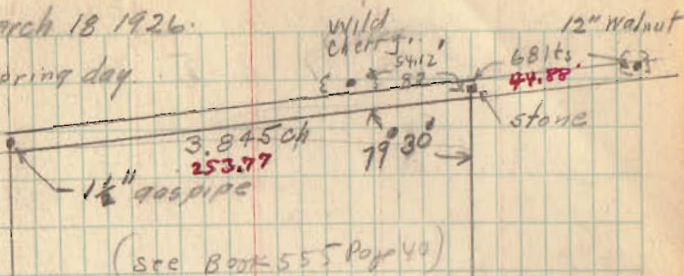 arch 18 1926.
pring day
Wild
Cherry.
12" Walnut
54.12'
82
68 lts
44.88.
stone
3.845 ch
253.77
79° 30'
1½" gaspipe
(see Book 555 Page 40)